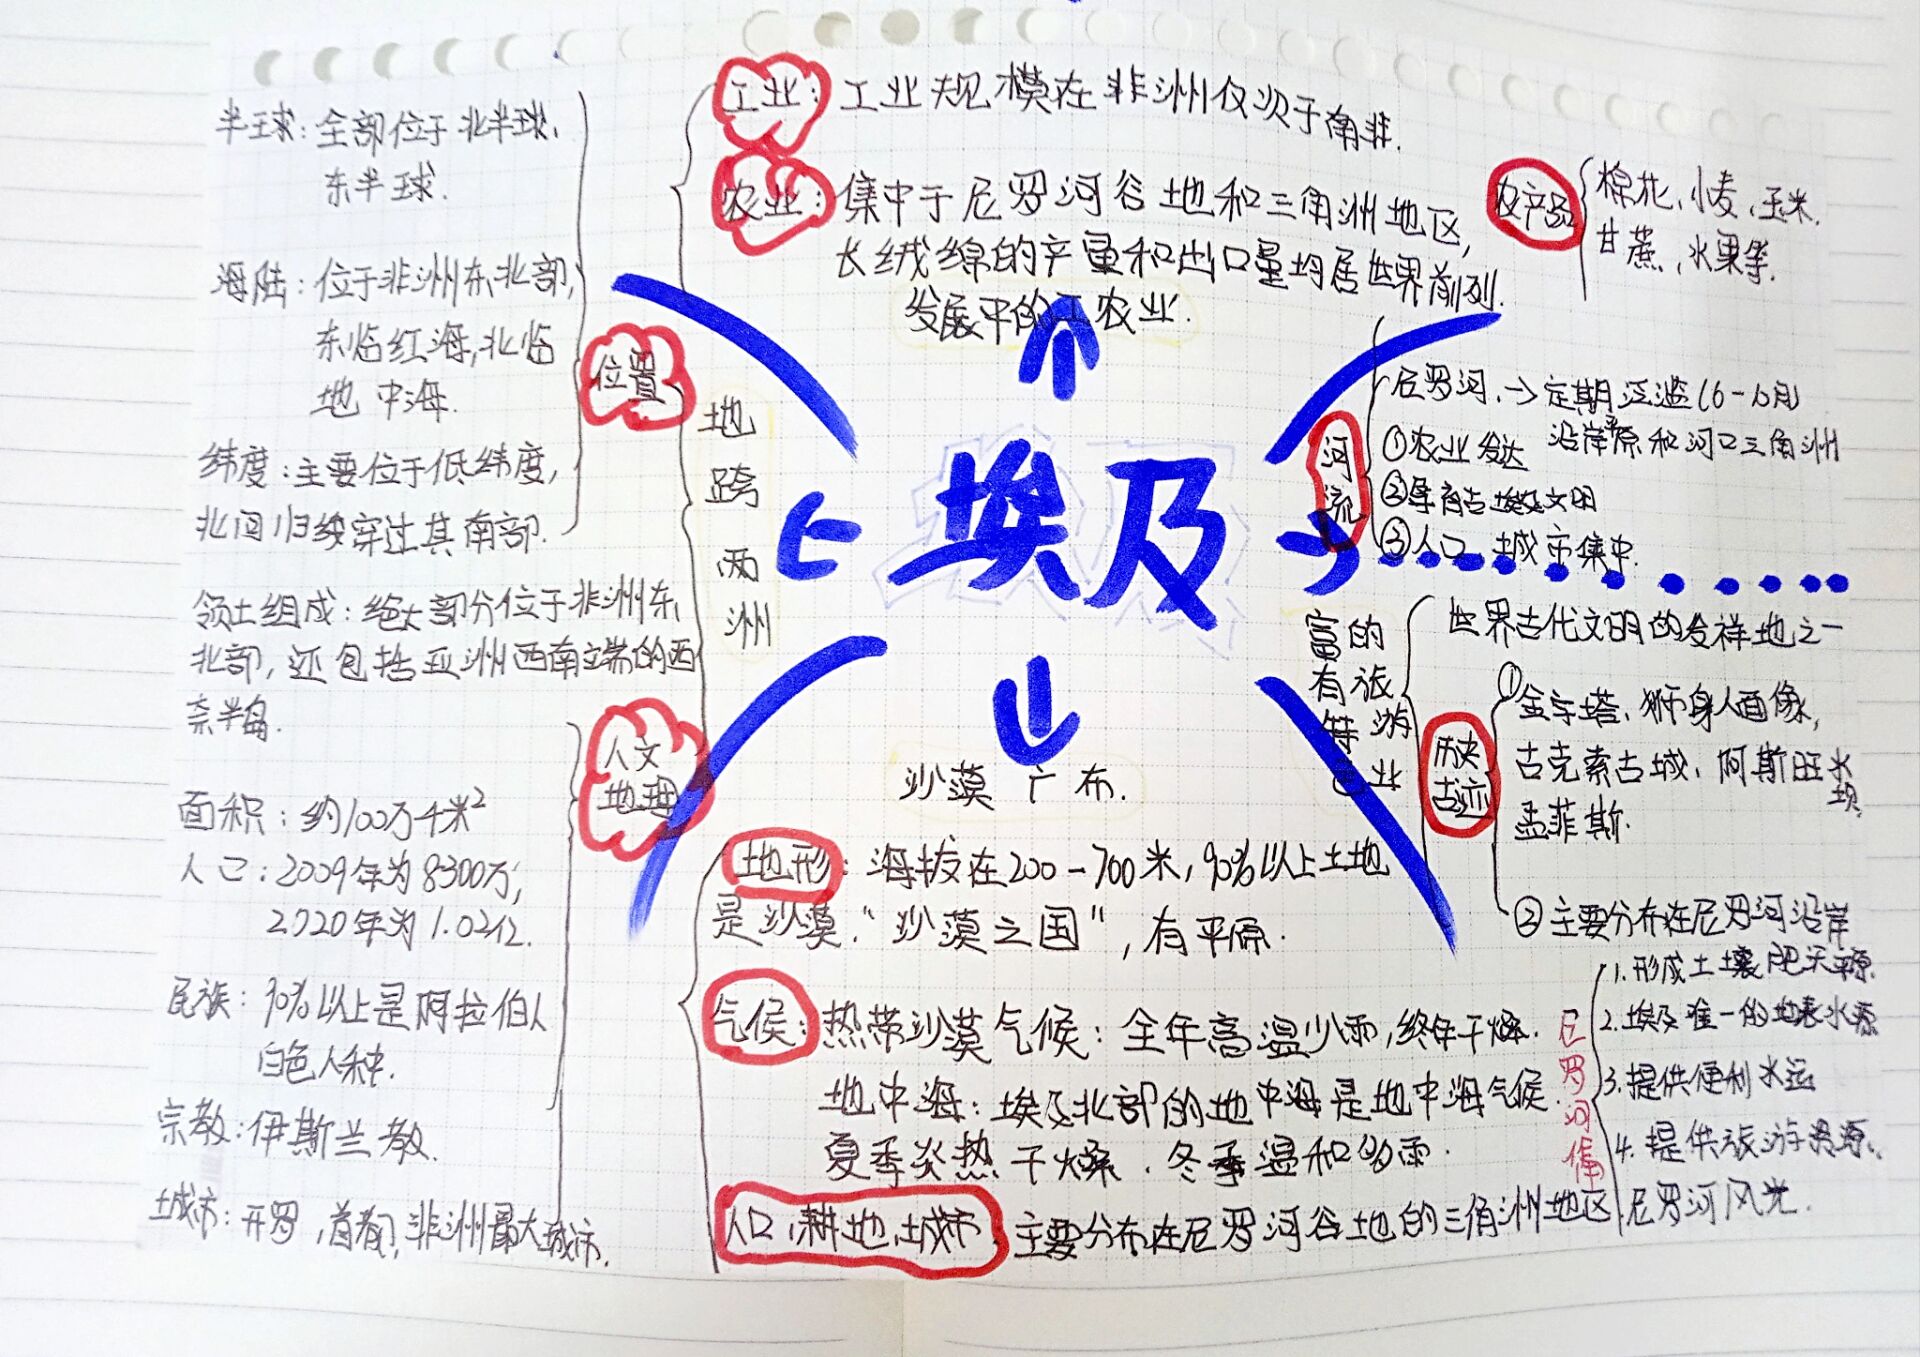 埃及
工业：工业规模在非洲仅次于南非.
农业：集中于尼罗河谷地和三角洲地区,
长绒绵的产量和出口量均居世界前列.
发展中的工农业.
农产品
棉花、小麦、玉米、
甘蔗、水果等.
地跨两洲
位置
半球：全部位于北半球、
东半球.
海陆：位于非洲东北部,
东临红海,北临
地中海.
纬度：主要位于低纬度,
北回归线穿过其南部.
领土组成：绝大部分位于非洲东
北部,还包括亚洲西南端的西
奈半岛.
人文
地理
面积：约100万千米²
人口：2009年为8300万,
2020年为1.02亿.
民族：90%以上是阿拉伯人
白色人种.
宗教：伊斯兰教.
城市：开罗,首都,非洲最大城市.
河流
尼罗河.→定期泛滥(6-10月)
沿岸平原和河口三角洲
①农业发达
②孕育古埃及文明
③人口、城市集中.
富有特色
的旅游业
世界古代文明的发祥地之一
历史
古迹
①金字塔、狮身人面像,
古克索古城、阿斯旺水坝
孟菲斯.
②主要分布在尼罗河沿岸
沙漠广布.
地形：海拔在200-700米,90%以上土地
是沙漠."沙漠之国",有平原.
气候：热带沙漠气候：全年高温少雨,终年干燥.
地中海：埃及北部的地中海是地中海气候.
夏季炎热干燥.冬季温和多雨.
人口、耕地、城市：主要分布在尼罗河谷地的三角洲地区
尼罗河
1.形成土壤肥沃平原.
2.埃及唯一的地表水源
3.提供便利水运
4.提供旅游资源.
尼罗河风光.